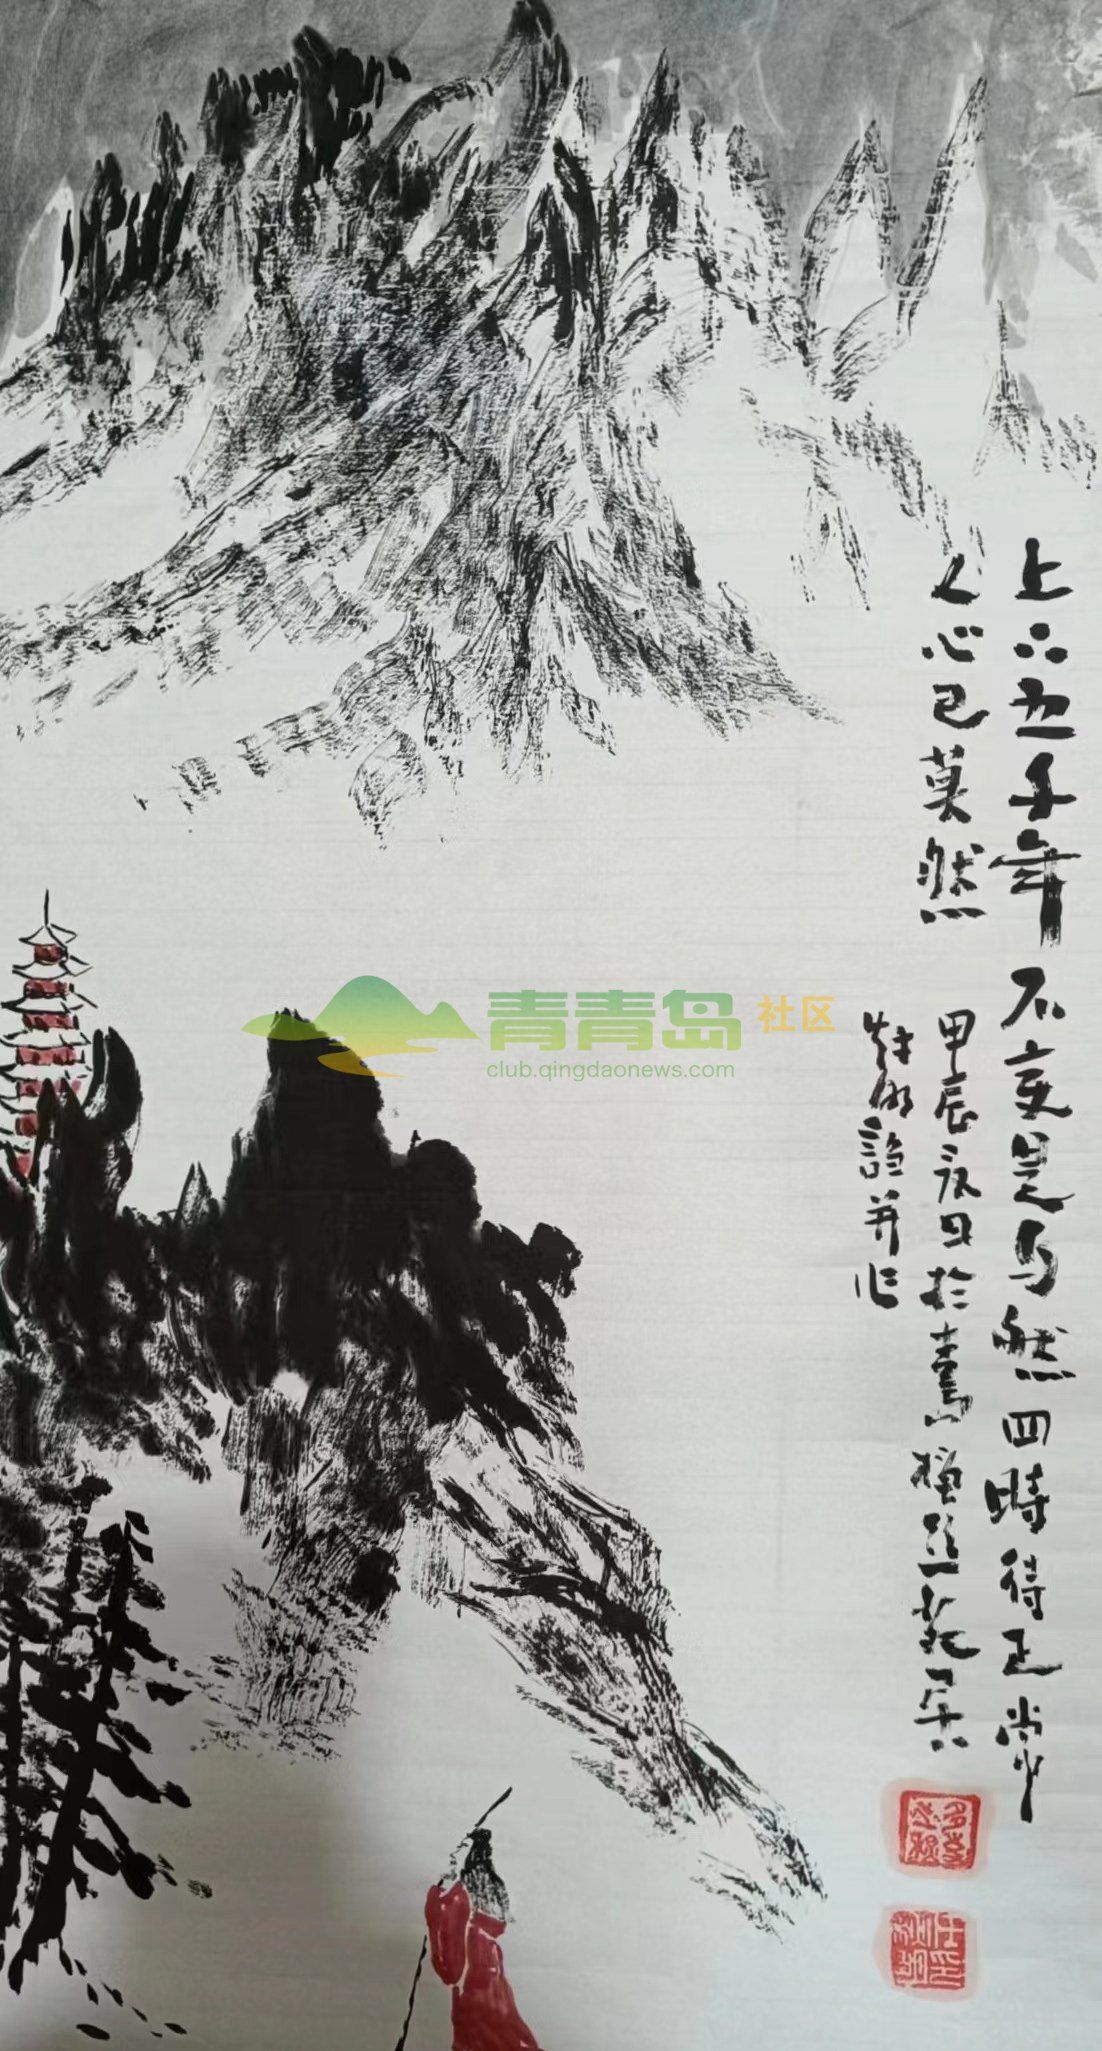 上下五千年 不变是自然 四時得正常
人心已莫然
甲辰秋日於嵩山禅
并作
青青岛社区
club.qingdaonews.com